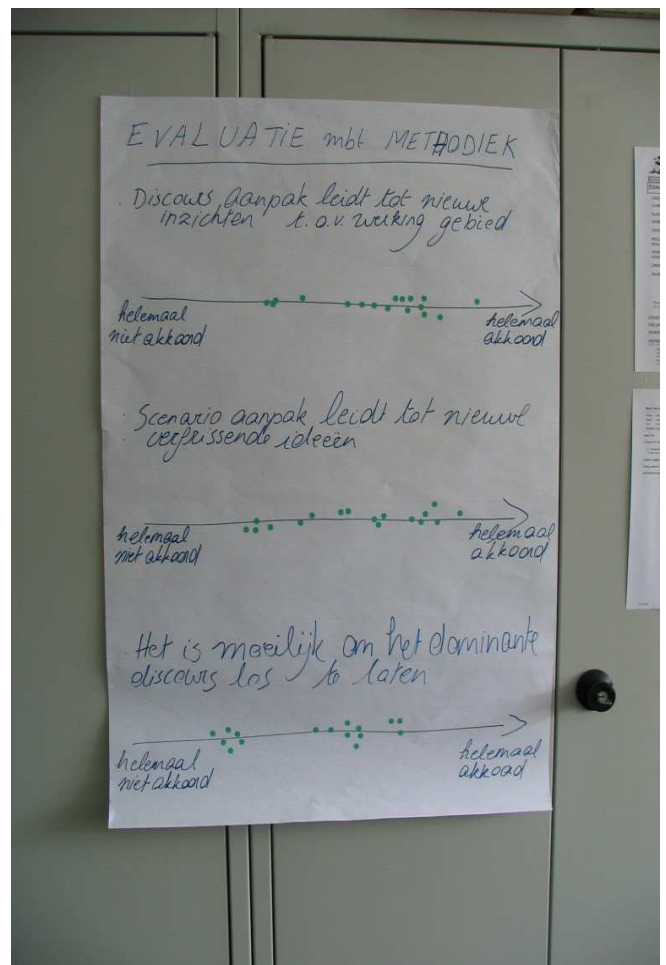 EVALUATIE mbt METHODIEK
. Discours aanpak leidt tot nieuwe
inzichten t.o.v. werking gebied
helemaal
niet akkoord
helemaal
akkoord
. Scenario aanpak leidt tot nieuwe
verfrissende ideeën
helemaal
niet akkoord
helemaal
akkoord
. Het is moeilijk om het dominante
discours los te laten
helemaal
niet akkoord
helemaal
akkoord